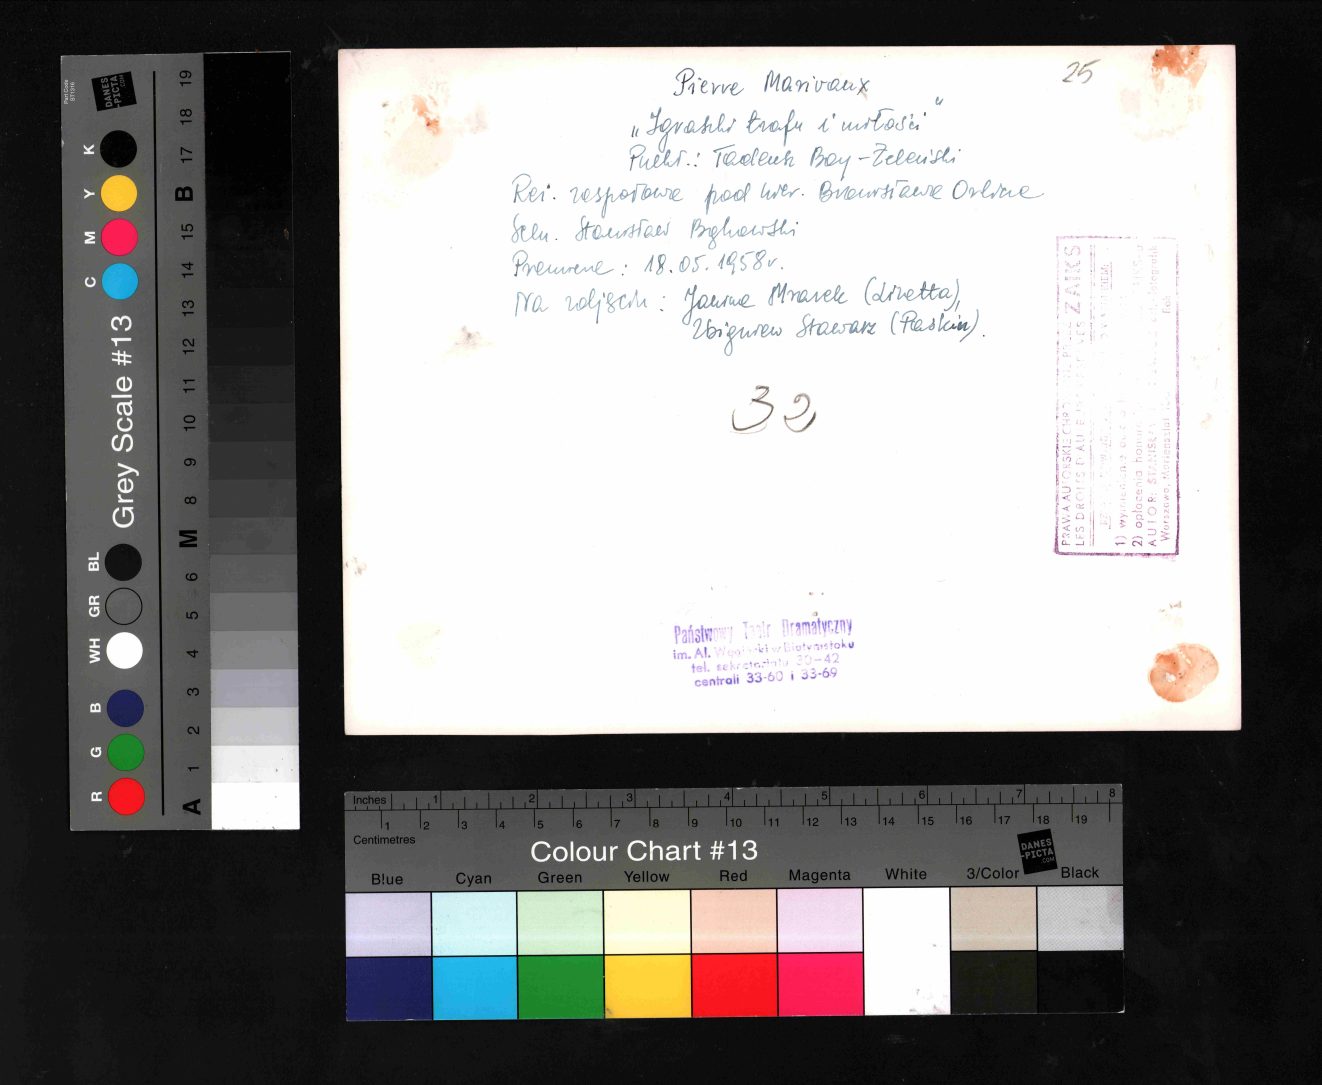 25
Pierre Marivaux
„Igraszki trafu i miłości"
Przekł.: Tadeusz Boy-Żeleński
Reż. zespołowa pod kier. Bronisława Orlicza
Scen. Stanisław Bąkowski
Premiera: 18.05.1958r.
Na zdjęciu: Janina Mrazek (Lizetta),
Zbigniew Stawarz (Paskin).
32
ZAIKS
1)
2) opłacenia
AUTOR:
Warszawa,
Państwowy Teatr Dramatyczny
im. Al. Węgierki w Białymstoku
tel. sekretariatu 30-42
centrali 33-60 i 33-69
Part Code
ST1316
DANES
-PICTA
.COM
Grey Scale #13
R G B WH GR BL C M Y K
A 1 2 3 4 5 6 M 8 9 10 11 12 13 14 15 B 17 18 19
Inches 1 2 3 4 5 6 7 8
1 2 3 4 5 6 7 8 9 10 11 12 13 14 15 16 17 18 19
Centimetres
Colour Chart #13
DANES
-PICTA
.COM
Blue Cyan Green Yellow Red Magenta White 3/Color Black